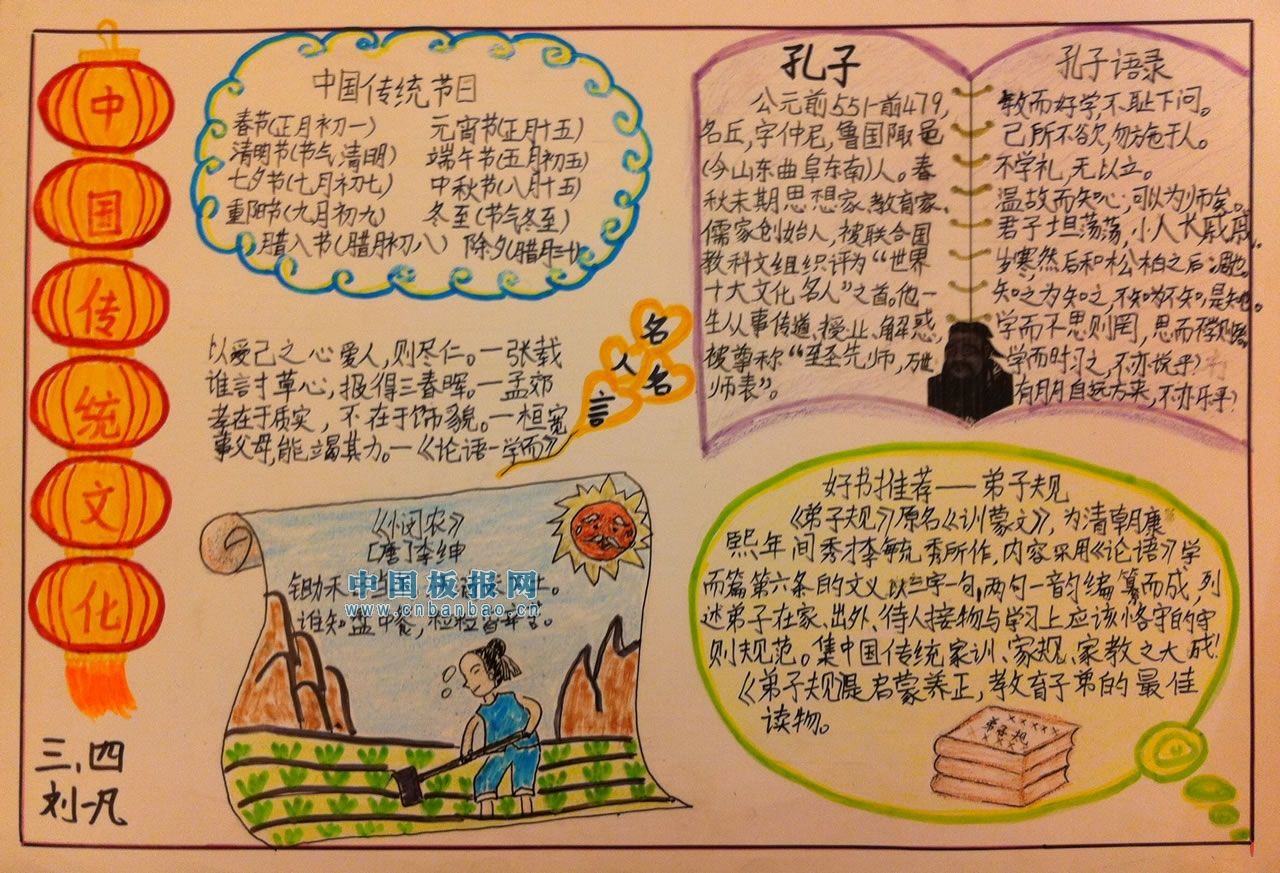 中
国
传
统
文
化
三、四
刘一凡
中国传统节日
春节(正月初一) 元宵节(正月十五)
清明节(节气,清明) 端午节(五月初五)
七夕节(七月初七) 中秋节(八月十五)
重阳节(九月初九) 冬至(节气冬至)
腊八节(腊月初八) 除夕(腊月三十)
名人名言
以爱己之心爱人,则尽仁。—张载
谁言寸草心,报得三春晖。—孟郊
孝在于质实,不在于饰貌。—桓宽
事父母,能竭其力。—《论语-学而》
《悯农》
[唐]李绅
锄禾
谁知盘中餐,粒粒皆辛苦。
中国板报网
www.cnbanbao.cn
孔子
公元前551-前479,
名丘,字仲尼,鲁国陬邑
(今山东曲阜东南)人。春
秋末期思想家、教育家、
儒家创始人,被联合国
教科文组织评为“世界
十大文化名人”之首。他一
生从事传道、授业、解惑,
被尊称“至圣先师,万世
师表”。
孔子语录
敏而好学,不耻下问。
己所不欲,勿施于人。
不学礼,无以立。
温故而知心,可以为师矣。
君子坦荡荡,小人长戚戚。
岁寒,然后和松柏之后凋也。
知之为知之,不知为不知,是知也。
学而不思则罔,思而不学则殆。
学而时习之,不亦说乎?
有朋自远方来,不亦乐乎?
好书推荐——弟子规
《弟子规》原名《训蒙文》,为清朝康
熙年间秀才李毓秀所作,内容采用《论语》学
而篇第六条的文义以三字一句,两句一韵编纂而成,列
述弟子在家、出外、待人接物与学习上应该恪守的守
则规范。集中国传统家训、家规、家教之大成!
《弟子规》是启蒙养正,教育子弟的最佳
读物。
弟子规